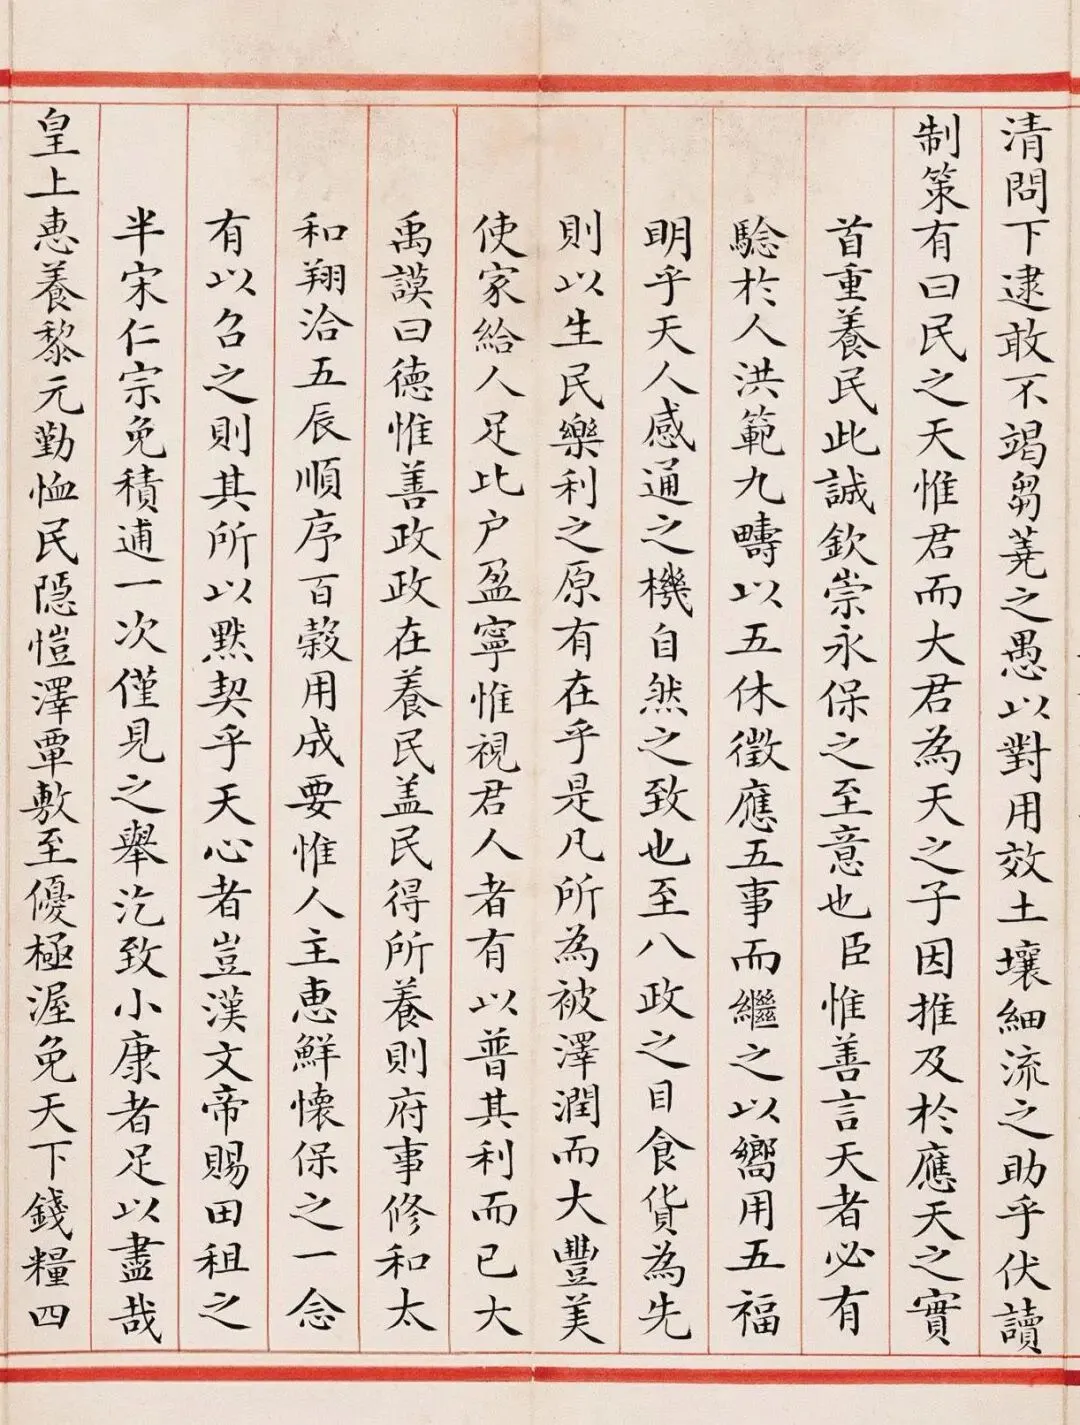 清問下逮敢不竭芻蕘之愚以對用效土壤細流之助乎伏讀
制策有曰民之天惟君而大君為天之子因推及於應天之實
首重養民此誠欽崇永保之至意也臣惟善言天者必有
驗於人洪範九疇以五休徵應五事而繼之以嚮用五福
明乎天人感通之機自然之致也至八政之目食貨為先
則以生民樂利之原有在乎是凡所為被澤潤而大豐美
使家給人足比户盈寧惟視君人者有以普其利而已大
禹謨曰德惟善政政在養民盖民得所養則府事修和太
和翔洽五辰順序百穀用成要惟人主惠鮮懷保之一念
有以召之則其所以默契乎天心者豈漢文帝賜田租之
半宋仁宗免積逋一次僅見之舉汔致小康者足以盡哉
皇上惠養黎元勤恤民隱愷澤覃敷至優極渥免天下錢糧四